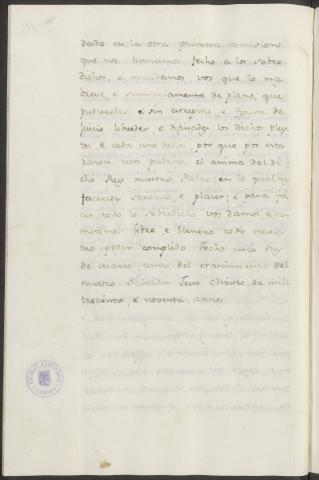 dado en la otra primera comision
que nos haviamos fecho a los sobre
dichos, e mandamos vos que lo mas
breve, e sumariamente de plano, que
pudieredes e sin estrepitu, e figura de
juicio libredes e determinedes los dichos pley
tos e cada uno dellos, por que por esta
razon non padesca el anima del di
cho Rey nuestro Padre; en lo qual nos
faceredes servicio, e placer; e para fa
cer todo lo sobredicho vos damos, e co
metemos libre e llenero todo nues
tro poder complido. Fecho cinco dias
de marzo anno del nascimiento del
nuestro Salvador Jesu Christo de mill
trecientos, e noventa, annos.